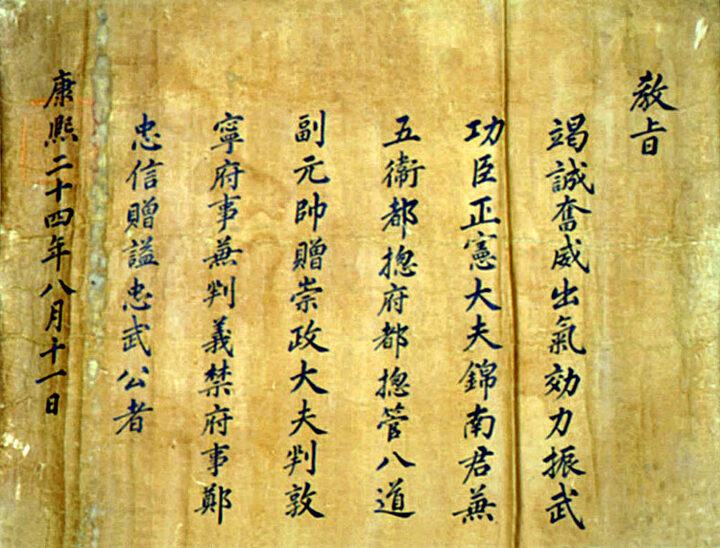 教旨
竭誠奮威出氣効力振武
功臣正憲大夫錦南君兼
五衛都摠府都摠管八道
副元帥贈崇政大夫判敦
寧府事兼判義禁府事鄭
忠信贈謚忠武公者
康熙二十四年八月十一日